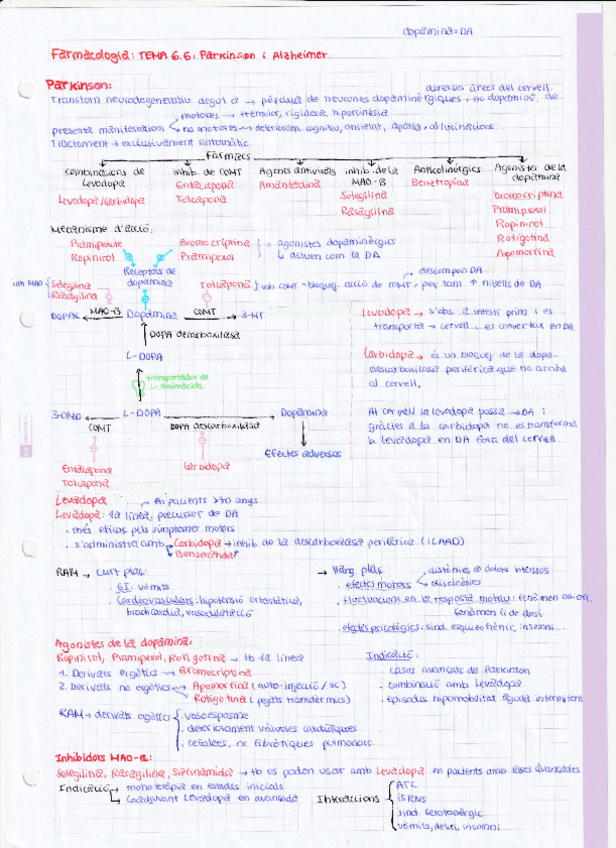 dopamina = DA
Farmacologia: TEMA 6.6: Parkinson i Alzheimer
Parkinson:
diverses àrees del cervell.
Transtorn neurodegeneratiu degut a → pèrdua de neurones dopaminèrgiques, no dopamin. de
motores → tremolor, rigidesa, hipocinèsia
presenta manifestacions no motores → deteriorament cognitiu, ansietat, apatia, al·lucinacions...
Tractament → exclusivament simptomàtic
Fàrmacs
Combinacions de Levodopa
inhib de COMT
Agents antivirals
inhib. de la MAO-B
Anticolinèrgics
Agonistes de la dopamina
Levodopa/Carbidopa
Entacapona
Tolcapona
Amantadina
Selegilina
Rasagilina
Benztropina
Bromocriptina
Pramipexol
Ropinirol
Rotigotina
Apomorfina
Mecanisme d'acció:
Pramipexole
Ropinirol
Bromocriptina
Pramipexol
= agonistes dopaminèrgics
↳ activen com la DA
Receptors de dopamina
descomponen DA
inh MAO
Selegilina
Rasagilina
Tolcapona } inh COMT → bloqueig acció de COMT, per tant ↑ nivells de DA
DOPAC ← MAO-B Dopamina COMT → 3-MT
DOPA descarboxilasa
L-DOPA
transportador de L-aminoàcids
3-OMD ← COMT L-DOPA DOPA descarboxilasa → Dopamina
Efectes adversos
Entacapona
Tolcapona
Carbidopa
Levodopa → s'abs. a intestí prim i es
transporta → cervell... es converteix en DA
Carbidopa → és un bloqueig de la dopa-
descarboxilasa perifèrica que no arriba
al cervell.
Al cervell la levodopa passa → DA i
gràcies a la carbidopa no es transforma
la levodopa en DA fora del cervell.
Levodopa
en pacients >70 anys
Levodopa: 1a línea, precursor de DA
· més eficaç pels símptomes motors
· s'administra amb Carbidopa → inhib. de la descarboxilasa perifèrica (ILAAD)
Benserazida
RAM → Curt plaç:
· GI: vòmits
· Cardiovasculars: hipotensió ortostàtica,
bradicardia, vasodilatació
→ Llarg plaç
distònies et dolors intensos
· efectes motors
discinèsies
· Fluctuacions en la resposta motriu: fenomen on-off,
fenòmen fi de dosi
· efectes psicològics: sínd. esquizofrènic, insomni...
Agonistes de la dopamina:
Ropinirol, Pramipexol, Rotigotina → tb 1a línea
1. Derivats ergòtics → Bromocriptina
2. Derivats no ergòtics → Apomorfina (auto-injecció/SC)
Rotigotina (pegats transdermics)
RAM → derivats ergòtics
· vasoespasme
· deteriorament vàlvules cardíaques
· cefalees, rx fibròtiques pulmonars
Indicació:
· casos avançats de Parkinson
· combinació amb Levodopa
· episodis hipomobilitat aguda
Inhibidors MAO-B:
Selegilina, Rasagilina, Safinamida → tb es poden usar amb Levodopa en pacients amb fases avançades
Indicació → monoteràpia en estadis inicials
↳ Coadjuvant Levodopa en avançada
Interaccions
ATC
ISRNS
sínd. serotonèrgic
vòmits, deliri, insomni